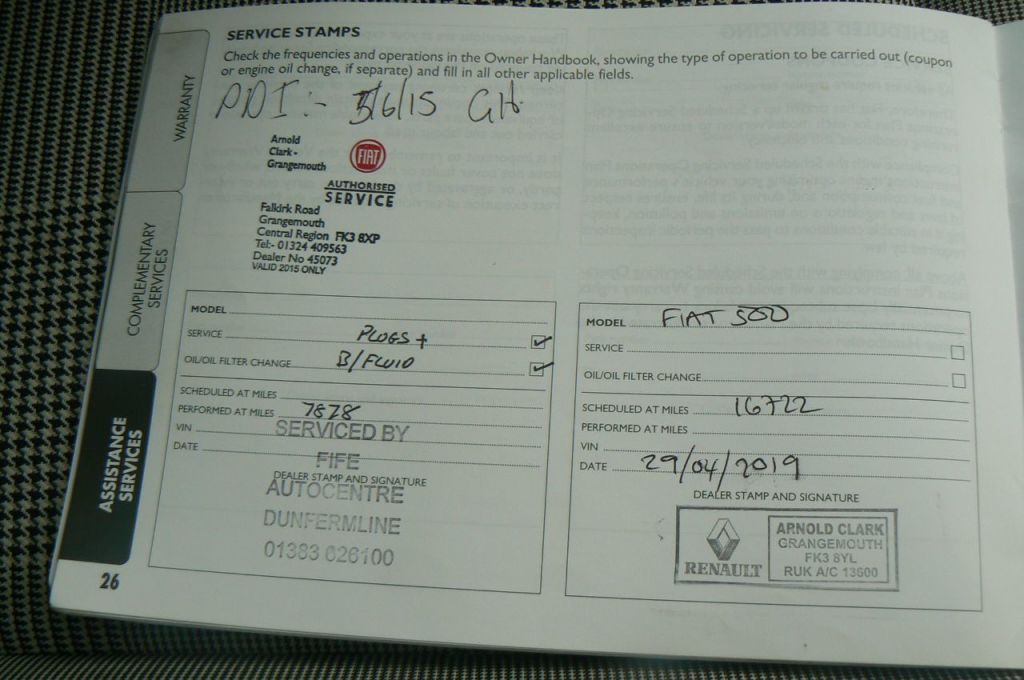 SERVICE STAMPS
Check the frequencies and operations in the Owner Handbook, showing the type of operation to be carried out (coupon
or engine oil change, if separate) and fill in all other applicable fields.
PDI :- 5/6/15 GH.
Arnold
Clark -
Grangemouth
FIAT
AUTHORISED
SERVICE
Falkirk Road
Grangemouth
Central Region FK3 8XP
Tel:- 01324 409563
Dealer No 45073
VALID 2015 ONLY
WARRANTY
COMPLEMENTARY
SERVICES
ASSISTANCE
SERVICES
MODEL
SERVICE PLUGS +
OIL/OIL FILTER CHANGE B/FLUID
SCHEDULED AT MILES
PERFORMED AT MILES 7878
VIN
SERVICED BY
DATE
FIFE
DEALER STAMP AND SIGNATURE
AUTOCENTRE
DUNFERMLINE
01383 626100
MODEL FIAT 500
SERVICE
OIL/OIL FILTER CHANGE
SCHEDULED AT MILES 16722
PERFORMED AT MILES
VIN
DATE 29/04/2019
DEALER STAMP AND SIGNATURE
RENAULT
ARNOLD CLARK
GRANGEMOUTH
FK3 8YL
RUK A/C 13600
26